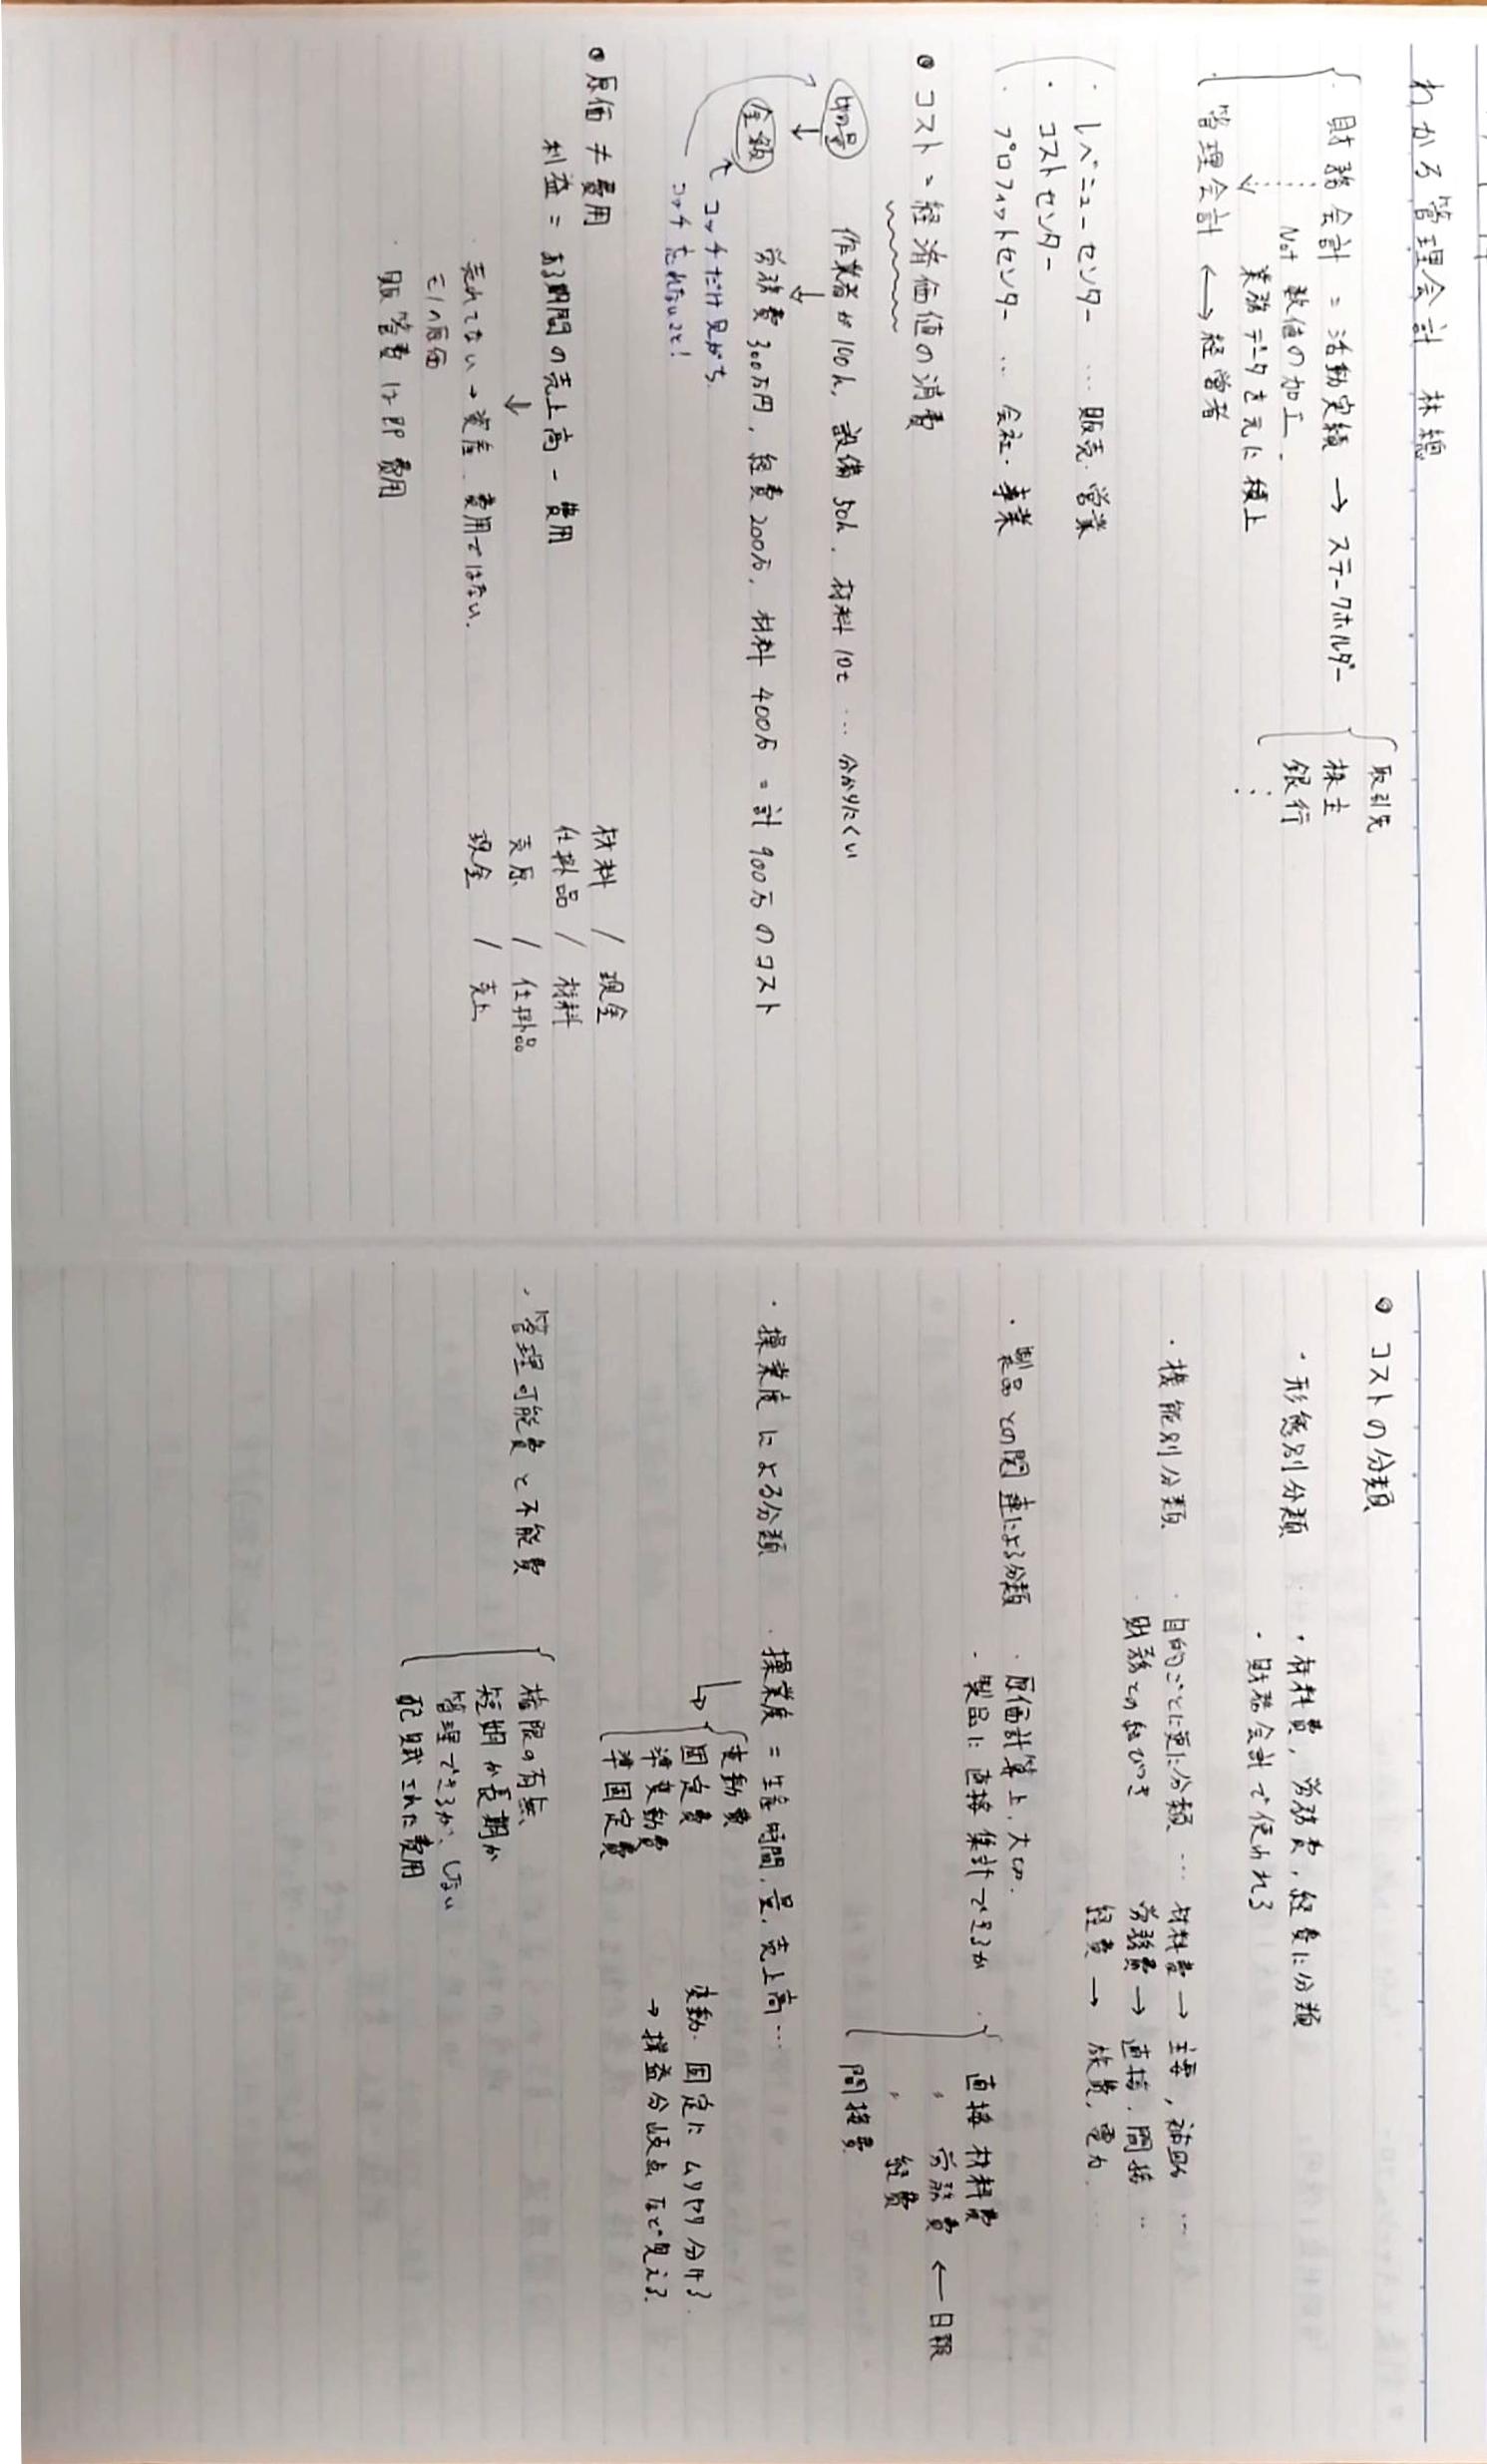 わかる管理会計 林總
・財務会計 = 活動実績 → ステークホルダー
取引先
株主
銀行
⋮
Not 数値の加工.
業務データを元に積上
・管理会計 ←→ 経営者
・レベニューセンター … 販売・営業
・コストセンター
・プロフィットセンター … 会社・事業
コスト = 経済価値の消費
物量 作業者が100h, 設備50h, 材料10t … 分かりにくい
↓ ↓
金額 労務費300万円, 経費200万, 材料400万 = 計900万のコスト
コッチだけ見がち
コッチ忘れないこと!
原価 ≠ 費用
利益 = ある期間の売上高 - 費用
↓
・売れてない → 資産 費用ではない.
モノの原価
・販管費は即費用
材料 / 現金
仕掛品 / 材料
売原 / 仕掛品
現金 / 売上
コストの分類
・形態別分類 ・材料費, 労務費, 経費に分類
・財務会計で使われる
・機能別分類 ・目的ごとに更に分類 … 材料費 → 主要, 補助 …
・財務との結びつき 労務費 → 直接, 間接 …
経費 → 旅費, 電力, …
・製品との関連による分類 ・原価計算上, 大切.
・製品に直接集計できるか
直接 材料費
〃 労務費 ← 日報
〃 経費
間接費
・操業度による分類 ・操業度 = 生産時間, 量, 売上高…
変動費
固定費 変動・固定にムリヤリ分ける.
準変動費 → 損益分岐点など見える.
準固定費
・管理可能費と不能費
権限の有無、
短期か長期か
管理できるが、しない
配賦された費用